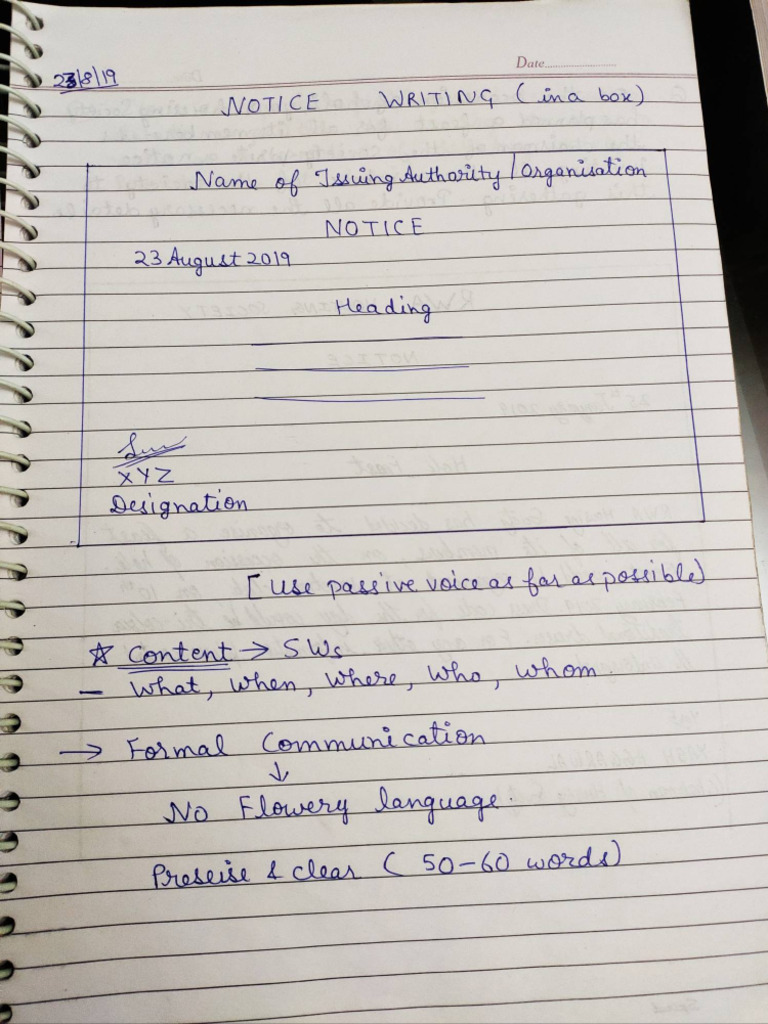 Date
23/8/19
NOTICE WRITING (in a box)
Name of Issuing Authority/Organisation
NOTICE
23 August 2019
Heading
XYZ
Designation
[Use passive voice as far as possible)
☆ Content → 5Ws
- What, When, Where, Who, Whom.
→ Formal Communication
↓
No Flowery language.
Preseise & clear (50-60 words)